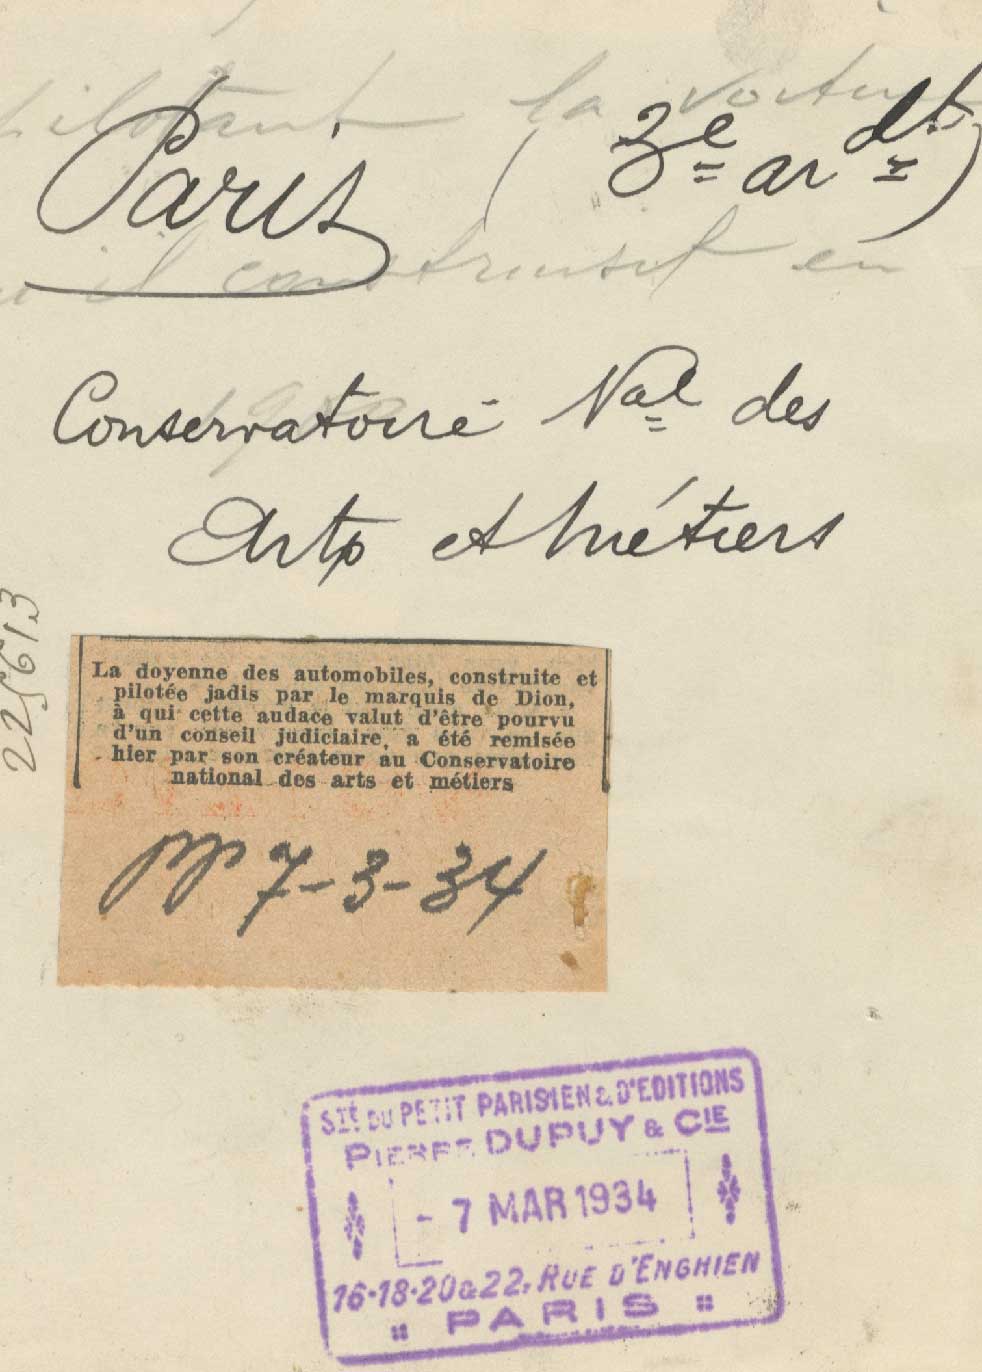 pilotant la voiture
Paris (3e ardt)
il construisit en
Conservatoire Nal des
Arts et Métiers
225613
La doyenne des automobiles, construite et
pilotée jadis par le marquis de Dion,
à qui cette audace valut d'être pourvu
d'un conseil judiciaire, a été remisée
hier par son créateur au Conservatoire
national des arts et métiers
PP 7-3-34
STÉ DU PETIT PARISIEN & D'EDITIONS
PIERRE DUPUY & CIE
- 7 MAR 1934
16·18·20 & 22, RUE D'ENGHIEN
PARIS